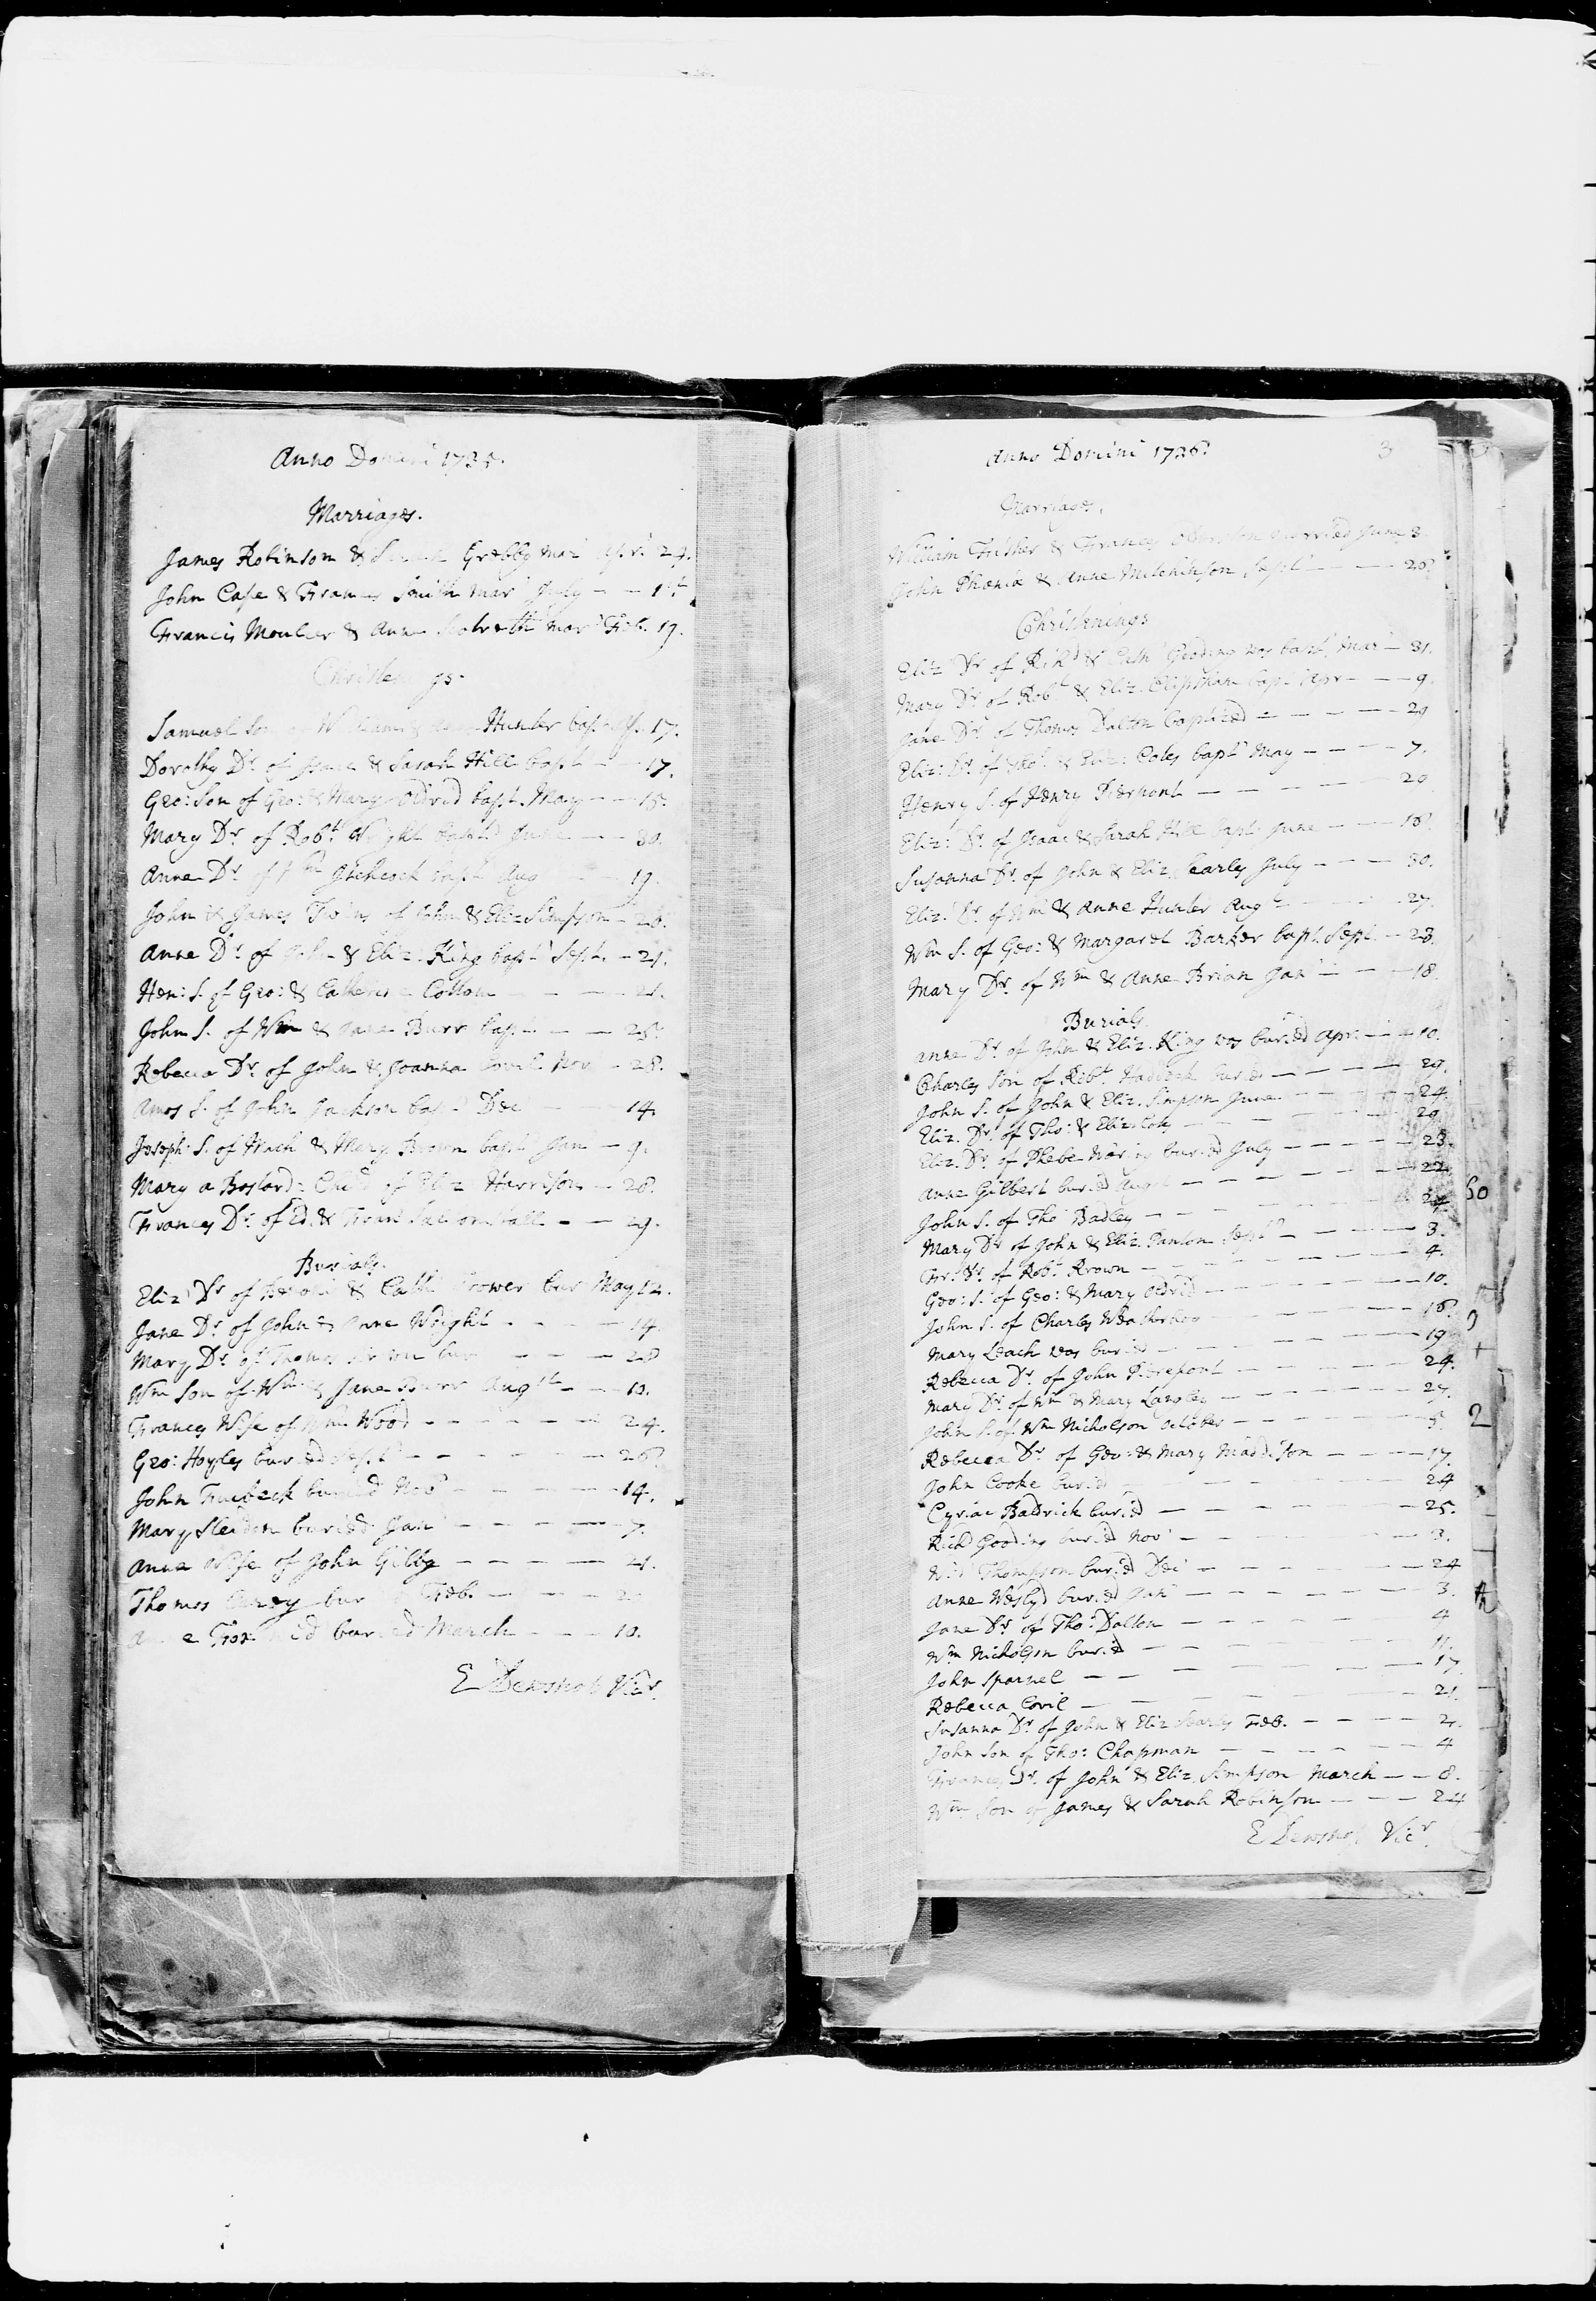 Anno Domini 1725.
Marriages.
James Robinson & Grebby mar Apr. 24.
John Cape & Frances Smith mar July 1st
Francis Moulier & Anne mar Feb. 19.
Christenings.
Samuel Son of William & Hunter bap. Ap. 17.
Dorothy Dr. of Isaac & Sarah Hill bapt 17.
Geo: Son of Geo: & Mary Oldrid bapt. May 15.
Mary Dr of Robt Wright bapt June 30.
Anne Dr. of Wm bapt Aug 19.
John & James Twins of John & Eliz Simpson 28.
Anne Dr. of John & Eliz. King bapt Sept. 21.
Hen: S. of Geo: & Catherine Cottom 21.
John S. of Wm & Jane Burr bapt 25.
Rebecca Dr. of John & Joanna Covil Nov 28.
Amos S. of John Jackson bap Dec 14.
Joseph S. of & Mary Brown bapt Jan 9.
Mary a Bastard: Child of Eliz Harrison 28.
Frances Dr. of Ed. & Fran 29.
Burials.
Eliz Dr of & Cath bur May 12.
Jane Dr. of John & Anne Wright 14.
Mary Dr. of Thomas bur 28
Wm Son of Wm & Jane Burr Augst 10.
Frances Wife of John Wood 24.
Geo: Hoyles buried Sept 26
John buried Nov 14.
Mary Sleadon buried Jan 7.
Anne Wife of John Gilby 21.
Thomas bur Feb. 2
buried March 10.
E Vicr.
Anno Domini 1726.
3
Marriages.
William Fisher & Frances married June 3
John Phoenix & Anne Mitchinson Sept 26
Christnings
Eliz Dr of Richd & Cath Gooding was bapt Mar 31.
Mary Dr. of Robt & Eliz. Clipsham bap. Apr 9.
Jane Dr. of Thomas Dalton baptized 29
Eliz: Dr. of Tho: & Eliz: Coles bapt May 7.
Henry S. of Henry Pierpont 29
Eliz: Dr. of Isaac & Sarah Hill bapt June 18.
Susanna Dr. of John & Eliz. Searly July 30.
Eliz: Dr. of Wm & Anne Hunter Augt 27.
Wm S. of Geo: & Margaret Barker bapt. Sept. 23.
Mary Dr. of Wm & Anne Brian Jan 18
Burials
Anne Dr. of John & Eliz. King was buried Apr 10.
Charles Son of Robt. Haddock buried 29.
John S. of John & Eliz. Simpson June 24.
Eliz. Dr. of Tho: & Eliz. Coles 29
Eliz. Dr. of Phebe Waring buried July 23.
Anne Gilbert buried Augt 22.
John S. of Tho Badley
Mary Dr of John & Eliz. Panton Sept 3.
Dr. of Robt Brown 4.
Geo: S. of Geo: & Mary Oldrid 10.
John S. of Charles 16
Mary Leach was buried 19
Rebecca Dr. of John Pierepont 24.
Mary Dr. of Wm & Mary Langley 27.
John S. of Wm Nicholson October 5.
Rebecca Dr. of Geo: & Mary Maddison 17.
John Cooke buried 24
Cyriac Baldrick buried 25.
Richd Gooding buried Nov 3.
Thompson buried Dec 24
Anne buried Jan 3.
Jane Dr. of Tho: Dalton 4
Wm Nicholson buried 11.
John Sparnel 17
Rebecca Covil 21.
Susanna Dr. of John & Eliz Searly Feb. 2.
John Son of Tho: Chapman 4
Frances Dr. of John & Eliz. Simpson March 8.
Wm Son of James & Sarah Robinson 24
E Vicr.